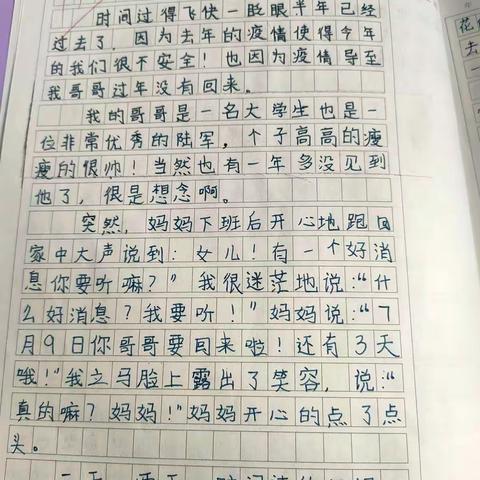 时间过得飞快一眨眼半年已经
过去了，因为去年的疫情使得今年
的我们很不安全！也因为疫情导至
我哥哥过年没有回来。
我的哥哥是一名大学生也是一
位非常优秀的陆军，个子高高的瘦
瘦的很帅！当然也有一年多没见到
他了，很是想念啊。
突然，妈妈下班后开心地跑回
家中大声说到：女儿！有一个好消
息你要听嘛？”我很迷茫地说：“什
么好消息？我要听！”妈妈说：“7
月9日你哥哥要回来啦！还有3天
哦！”我立马脸上露出了笑容，说：“
真的嘛？妈妈！”妈妈开心的点了点
头。
花
去